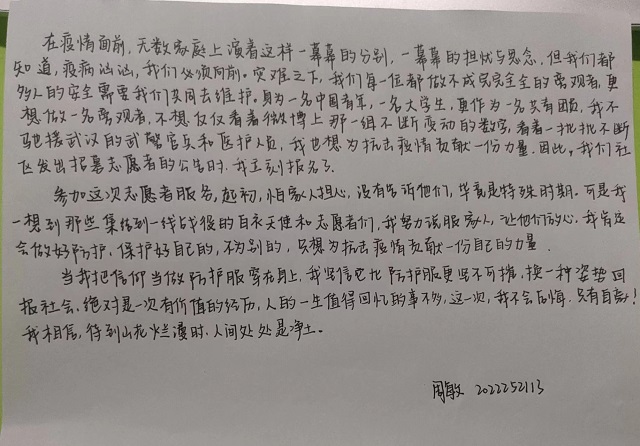 在疫情面前，无数家庭上演着这样一幕幕的分别，一幕幕的担忧与思念，但我们都
知道，疫病汹汹，我们必须向前。灾难之下，我们每一位都做不成完完全全的旁观者，更
多人的安全需要我们共同去维护。身为一名中国青年，一名大学生，更作为一名共青团员，我不
想做一名旁观者，不想仅仅看着微博上那一组不断变动的数字，看着一批批不断
驰援武汉的武警官兵和医护人员，我也想为抗击疫情贡献一份力量。因此，我们社
区发出招募志愿者的公告时，我立刻报名了。
参加这次志愿者服务，起初，怕家人担心，没有告诉他们，毕竟是特殊时期。可是我
一想到那些集结到一线战役的白衣天使和志愿者们，我努力说服家人，让他们放心，我肯定
会做好防护，保护好自己的，不为别的，只想为抗击疫情贡献一份自己的力量。
当我把信仰当做防护服穿在身上，我坚信它比防护服更坚不可摧，换一种姿势回
报社会，绝对是一次有价值的经历，人的一生值得回忆的事不多，这一次，我不会后悔，只有自豪！
我相信，待到山花烂漫时，人间处处是净土。
周敏 2022252113